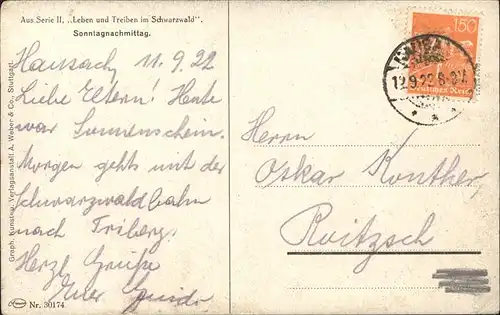 Aus Serie II, „Leben und Treiben im Schwarzwald“,
Sonntagnachmittag.
Hausach, 11.9.22
Liebe Eltern! Heute
war Sonnenschein.
Morgen gehts mit der
Schwarzwaldbahn
nach Triberg.
Herzl Grüße
Euer Guido
Graph. Kunst- u. Verlagsanstalt A. Weber & Co., Stuttgart.
Nr. 30174
150
Deutsches Reich
12.9.22.8-9V.
Herrn
Oskar Konther,
Roitzsch